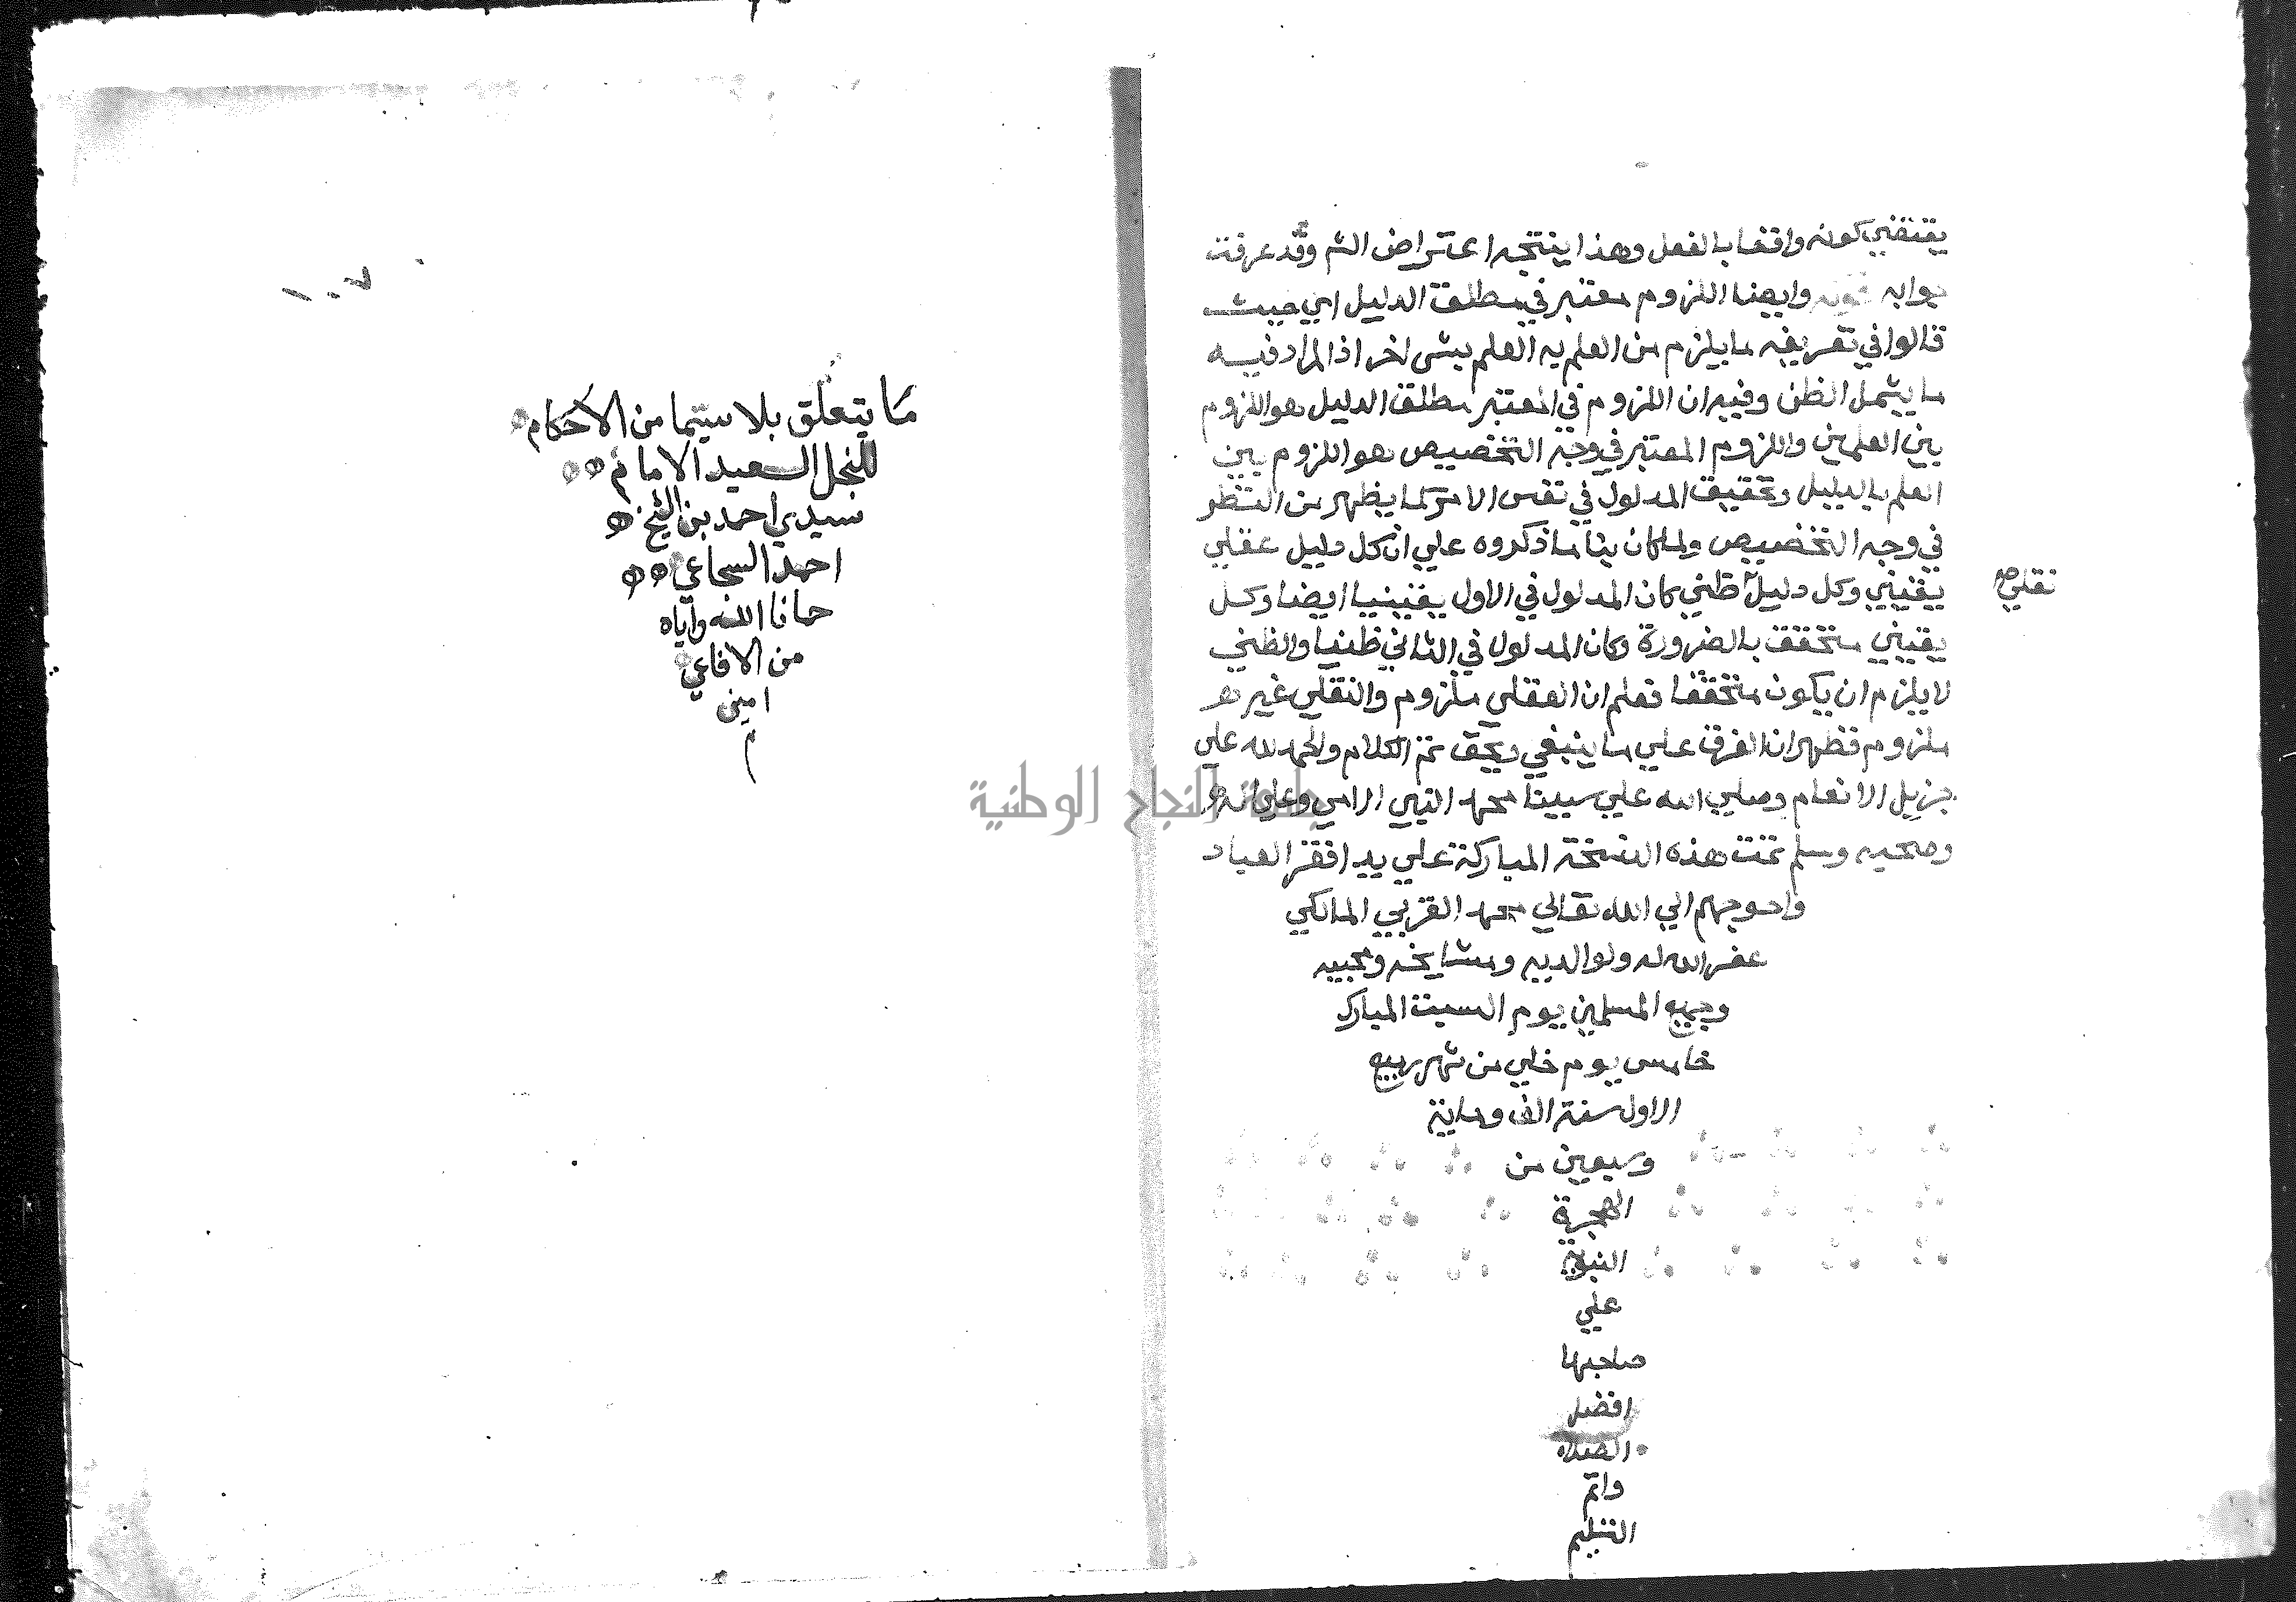 يقتضي كونه واقفا بالفعل وهذا ينتجه اعتراض الشم وقد عرفت
جوابه قوله وايضا اللزوم معتبر في مطلق الدليل اي حيث
قالوا في تعريفه ما يلزم من العلم به العلم بشي اخر اذ المراد فيه
ما يشمل الظن وفيه ان اللزوم في المعتبر مطلق الدليل هو اللزوم
بين العلمين واللزوم المعتبر في وجه التخصيص هو اللزوم بين
العلم بالدليل وتحقيق المدلول في نفس الامر كما يظهر من النظر
في وجه التخصيص ولما كان بنا ما ذكروه علي ان كل دليل عقلي
يقيني وكل دليل ظني كان المدلول في الاول يقينيا ايضا وكل
نقلي صح
يقيني متحقق بالضرورة وكان المدلول في الثاني ظنيا والظني
لا يلزم ان يكون متحققا فعلم ان العقلي ملزوم والنقلي غير
ملزوم فظهر ان الفرق علي ما ينبغي ويحق تم الكلام والحمد لله علي
جزيل الانعام وصلي الله علي سيدنا محمد النبي الامي وعلي اله
وصحبه وسلم تمت هذه النسخة المباركة علي يد افقر العباد
واحوجهم الي الله تعالي محمد المالكي
غفر الله له ولوالديه ومشايخه ومحبيه
وجميع المسلمين يوم السبت المبارك
خامس يوم خلي من شهر ربيع
الاول سنة الف وماية
وسبعين من
الهجرة
النبوية
علي
صاحبها
افضل
الصلاه
واتم
التسليم
١٠٧
ما يتعلق بلا سيما من الاحكام
للنجل السعيد الامام
سيدي احمد بن الشيخ
احمد السجاعي
حمانا الله واياه
من الافاعي
امين
م
جامعة النجاح الوطنية